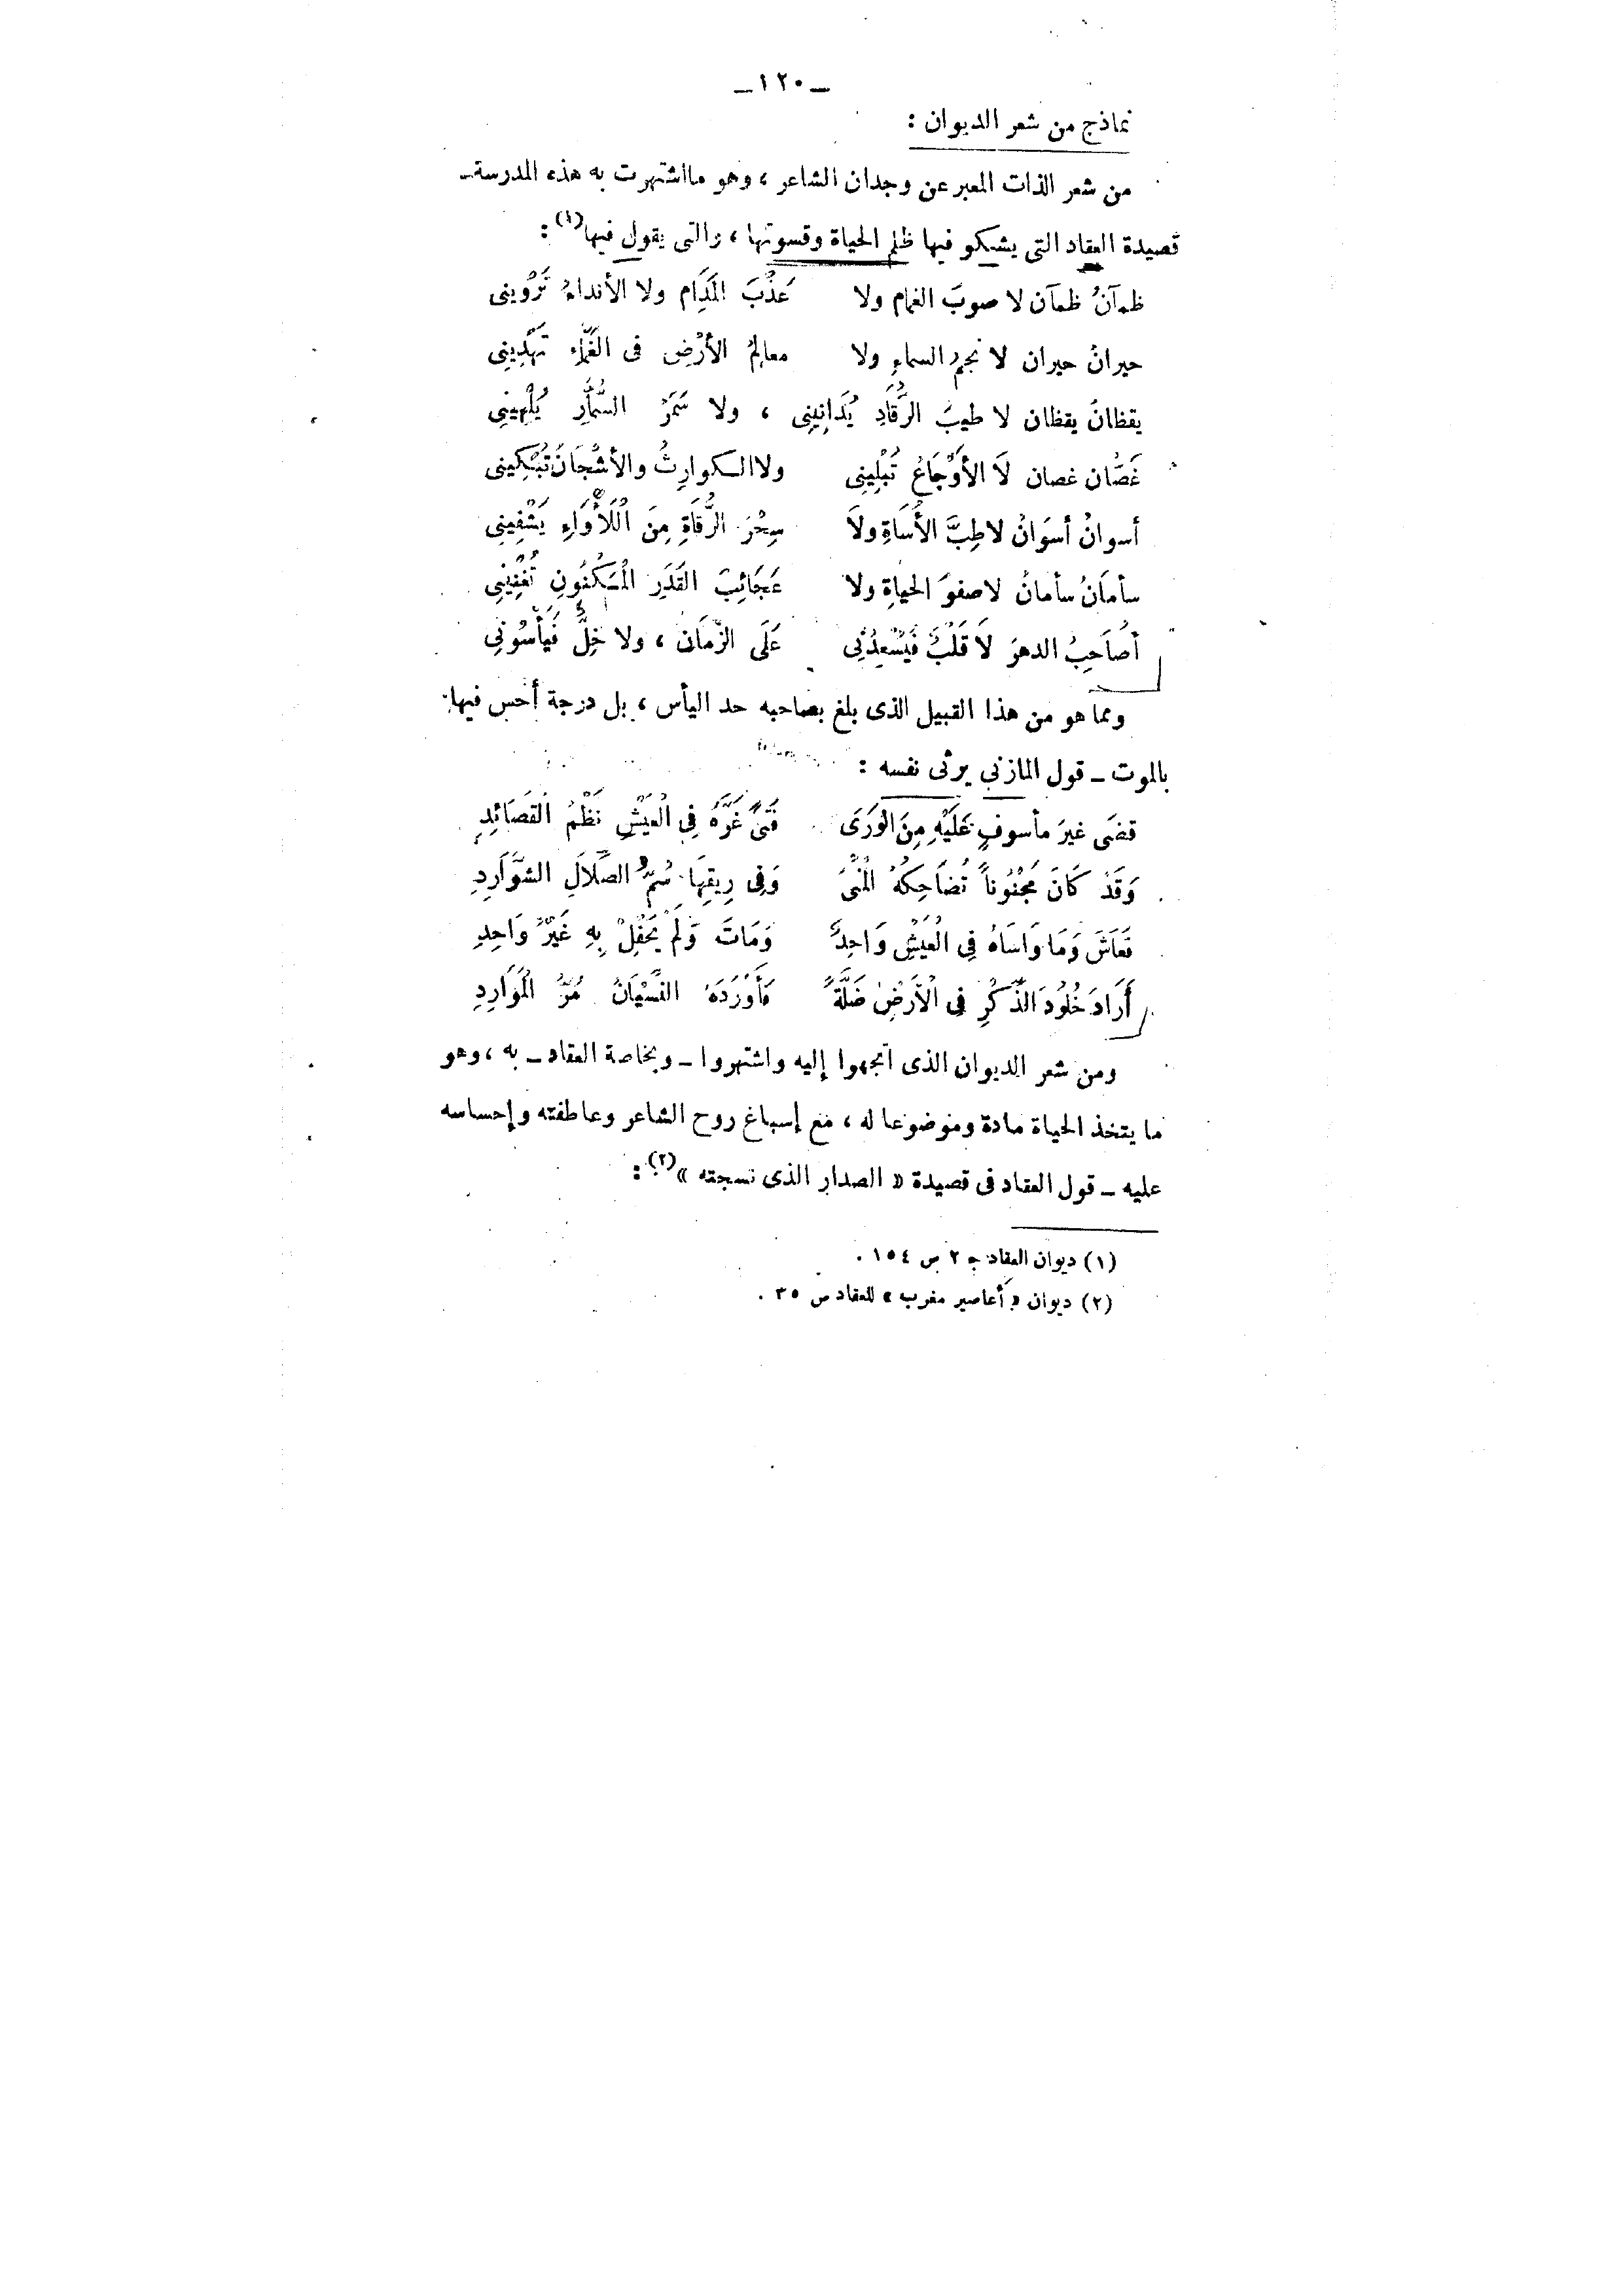 ـ ١٢٠ ـ
نماذج من شعر الديوان :
من شعر الذات المعبر عن وجدان الشاعر ، وهو ما اشتهرت به هذه المدرسة ـ
قصيدة العقاد التى يشكو فيها ظلم الحياة وقسوتها ، والتى يقول فيها (١) :
ظمآنُ ظمآن لا صوبَ الغمام ولا عَذْبَ المَدَام ولا الأنداءُ تَرْوينى
حيرانُ حيران لا نجمُ السماءِ ولا معالِمُ الأرْضِ فى الغَمَّاءِ تَهْدِينِى
يقظانُ يقظان لا طيبَ الرُّقَادِ يُدَانِينِى ، ولا سَمَرْ السُّمَّارِ يُلْهِينِى
غَصَّان غصان لَا الأوْجَاعُ تُبْلِينِى ولا الكوارِثُ والأشْجَانُ تُبْكِينى
أسوانُ أسوَانُ لا طِبَّ الأُسَاةِ ولَا سِحْرَ الرُّقَاةِ مِنَ اْللَأْوَاءِ يَشْفِينِى
سأمانُ سأمانُ لا صفوَ الحياةِ ولا عَجَائِبَ القَدَرِ المَسكْنُونِ تُغْنِينِى
أصَاحِبُ الدهرَ لَا قَلْبٌ فَيُسْعِدُنِى عَلَى الزَّمَانِ ، ولا خِلٌّ فَيَأْسُونِى
ومما هو من هذا القبيل الذى بلغ بصاحبه حد اليأس ، بل درجة أحس فيها
بالموت ـ قول المازنى يرثى نفسه :
قضَى غيرَ مأسوفٍ عَلَيْهِ مِنَ الْوَرَى فَتًى غَرَّهُ فِى الْعَيْشِ نَظْمُ الْقَصَائِدِ
وَقَدْ كَانَ مَجْنُوناً تُضَاحِكُهُ الْمُنَى وَفِى رِيقِهَا سُمُّ الصِّلَالِ الشَّوَارِدِ
فَعَاشَ وَمَا وَاسَاهُ فِى الْعَيْشِ وَاحِدٌ وَمَاتَ وَلَمْ يَحْفِلْ بِهِ غَيْرُ وَاحِدِ
أَرَادَ خُلُودَ الذِّكْرِ فِى الْأَرْضِ ضَلَّةً فَأَوْرَدَهُ النِّسْيَانُ مُرَّ الْمَوَارِدِ
ومن شعر الديوان الذى اتجهوا إليه واشتهروا ـ وبخاصة العقاد ـ به ، وهو
ما يتخذ الحياة مادة وموضوعا له ، مع إسباغ روح الشاعر وعاطفته وإحساسه
عليه ـ قول العقاد فى قصيدة « الصدار الذى نسجته » (٢) :
(١) ديوان العقاد ج ٢ ص ١٥٤ .
(٢) ديوان « أعاصير مغرب » للعقاد ص ٣٥ .